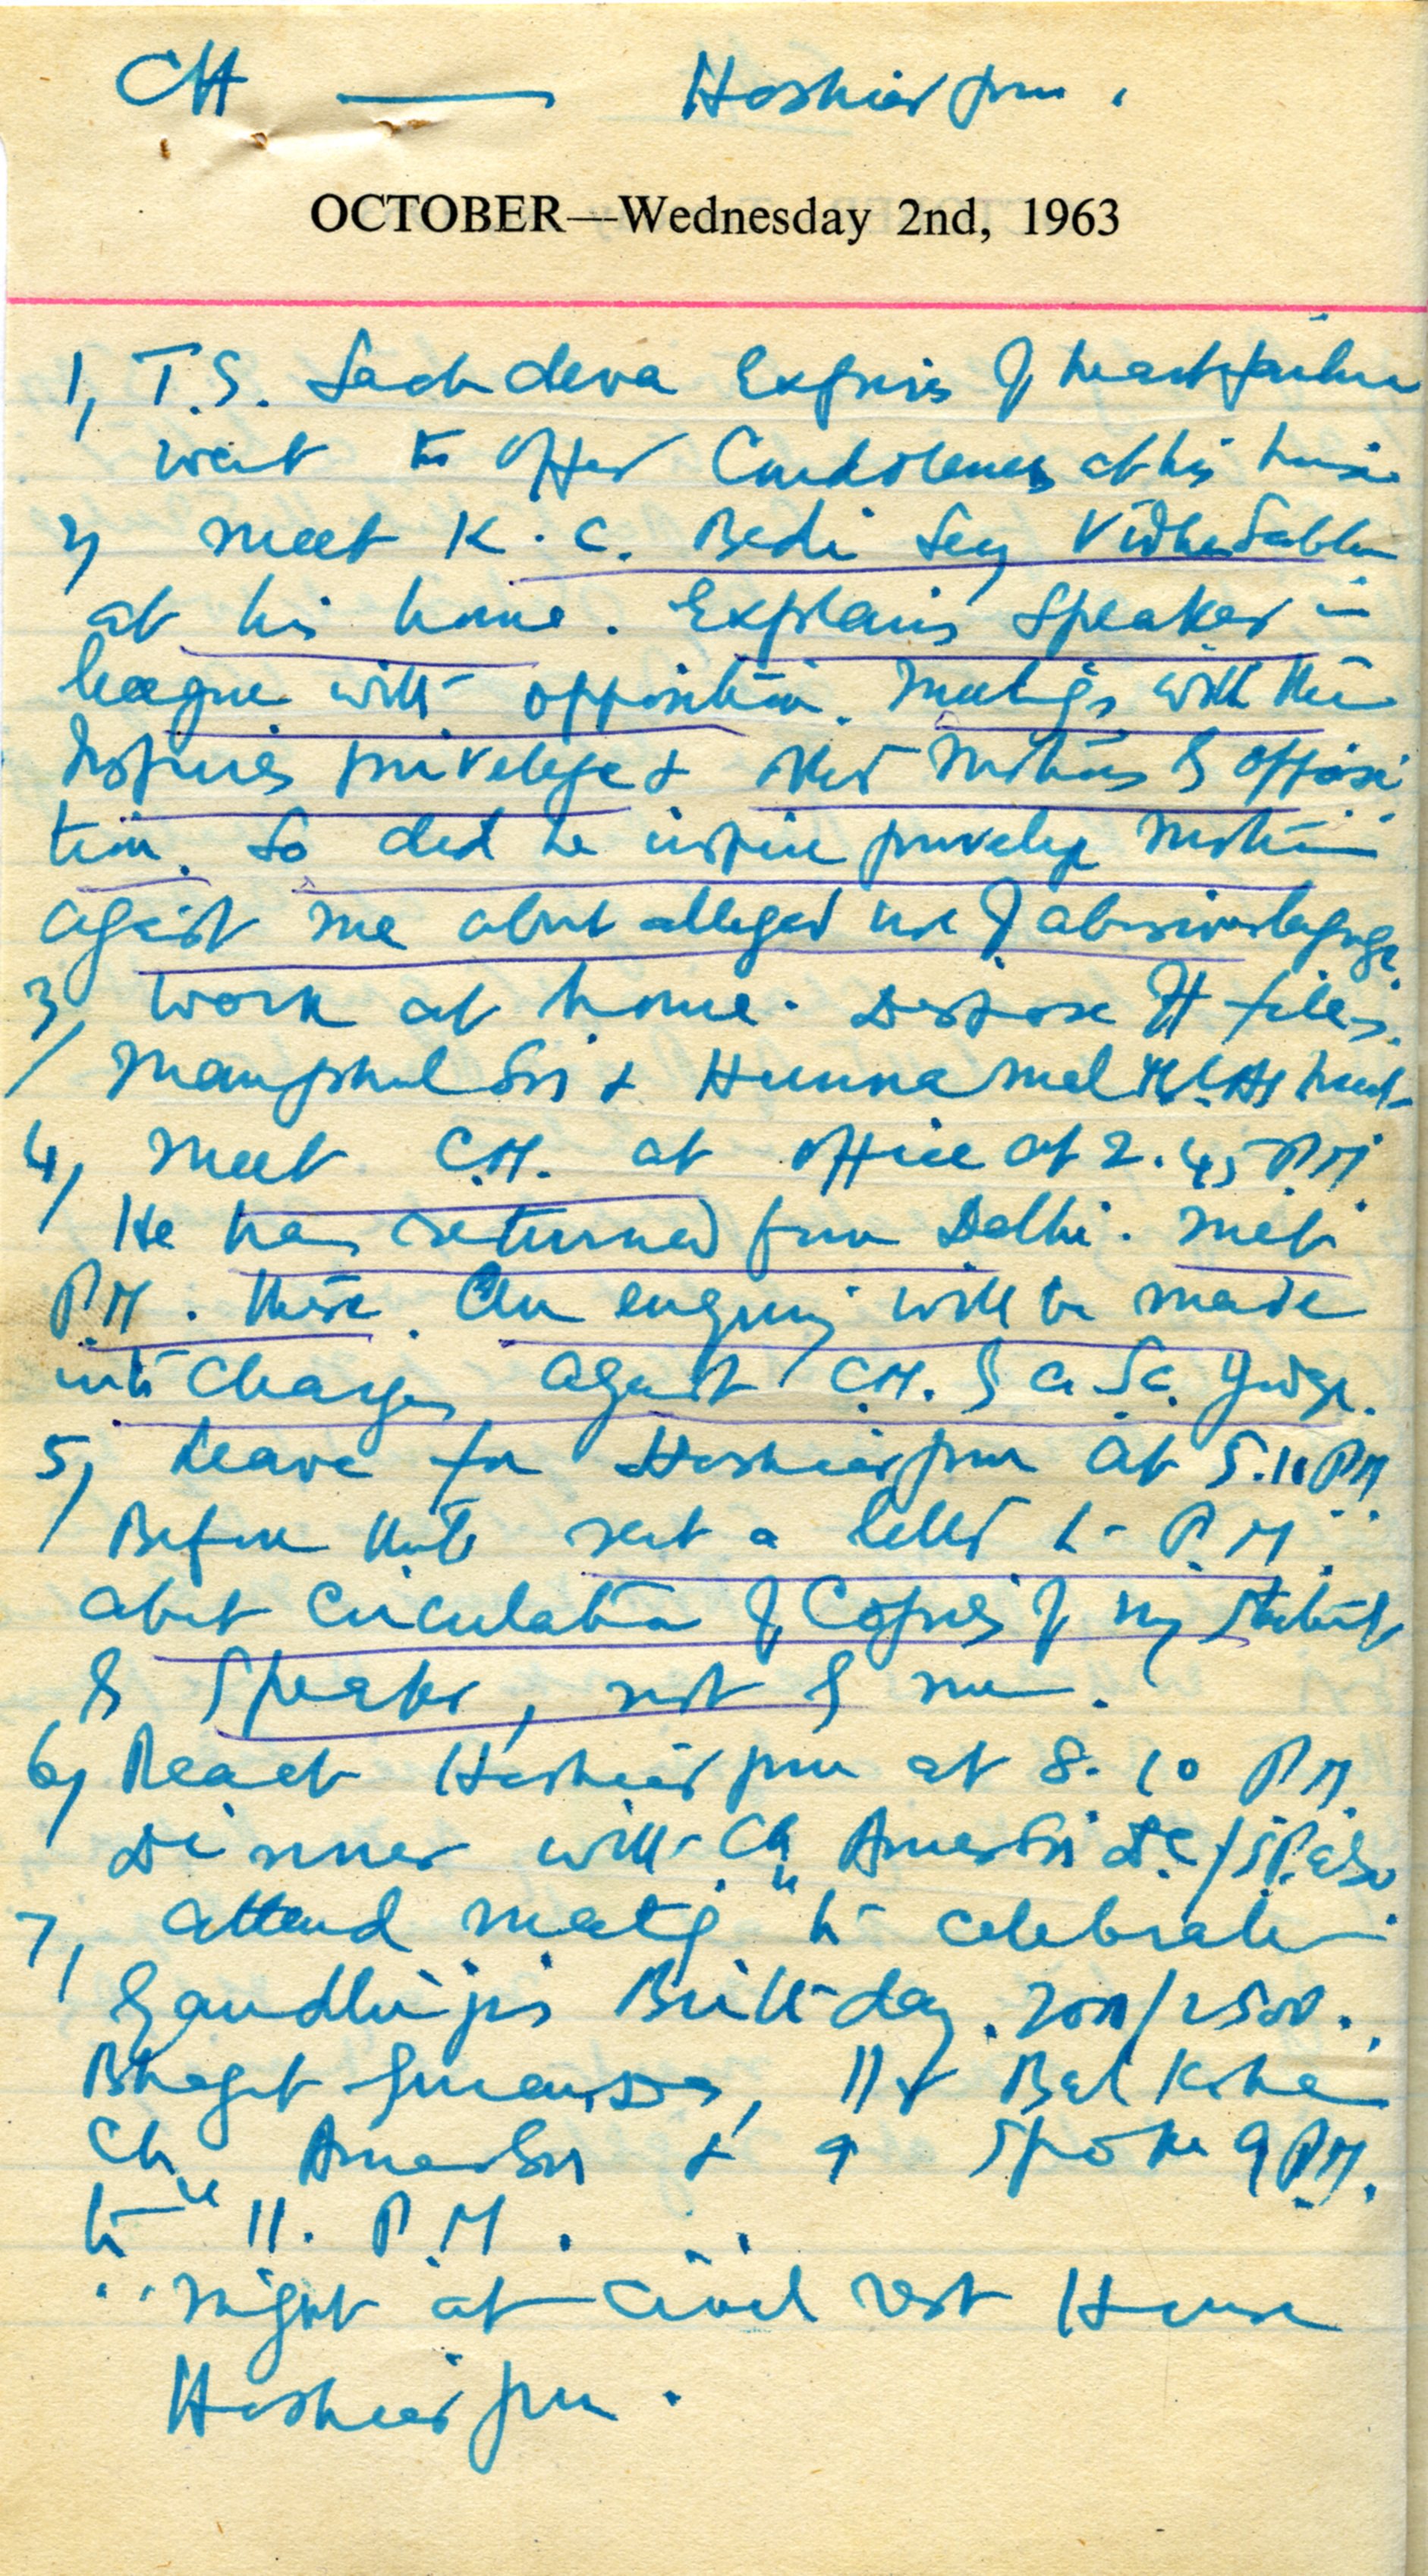 CH — Hoshiarpur.
OCTOBER—Wednesday 2nd, 1963
1, T.S. Sachdeva Expires of heartfailure
went to offer Condolences at his house
2, meet K.C. Bedi Secy Vidhan Sabha
at his home. Explains Speaker in
league with opposition. Meetings with them
Inspires privelege & other motions by opposi
tion. So did he inspire privelege motion
against me about alleged use of abusive language.
3, Work at home. Dispose off files.
Manphul Singh & Hunna Mal MLAs meet
4, Meet C.M. at office at 2.45 P.M.
He has returned from Delhi. Met
P.M. there. An enquiry will be made
into Charges against C.M. by a S.C. Judge.
5, Leave for Hoshiarpur at 5.10 PM
Before that sent a letter to P.M.
about circulation of Copies of my statement
by Speaker, not by me.
6, Reach Hoshiarpur at 8.10 P.M.
Dinner with Ch. Amar Singh D.C/SP. also
7, attend meeting to celebrate
Gandhiji's Birthday. 2000/2500.
Bhagat Guran Dass, & Bal Krishan
Ch. Amar Singh & I spoke 9 P.M.
to 11. P.M.
Night at Civil Rest House
Hoshiarpur.